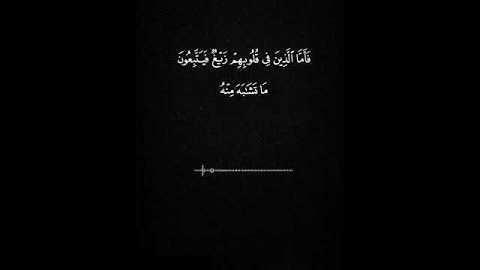 فَأَمَّا ٱلَّذِينَ فِي قُلُوبِهِمۡ زَيۡغٞ فَيَتَّبِعُونَ
مَا تَشَٰبَهَ مِنۡهُ